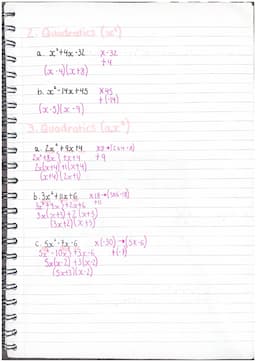 2. Quadratics (x²)
a. x²+4x-32 x-32
+4
(x-4)(x+8)
b. x²-14x+45 x45
+(-14)
(x-5)(x-9)
3. Quadratics (ax²)
a. 2x²+9x+4 x8→(2x4=8)
2x²+8x}+x+4 +9
2x(x+4)+1(x+4)
(x+4)(2x+1)
b. 3x²+11x+6 x18→(3x6=18)
3x²+9x}+2x+6 +11
3x(x+3)+2(x+3)
(3x+2)(x+3)
c. 5x²-7x-6 x(-30)→(5x-6)
5x²-10x}+3x-6 +(-7)
5x(x-2)+3(x-2)
(5x+3)(x-2)